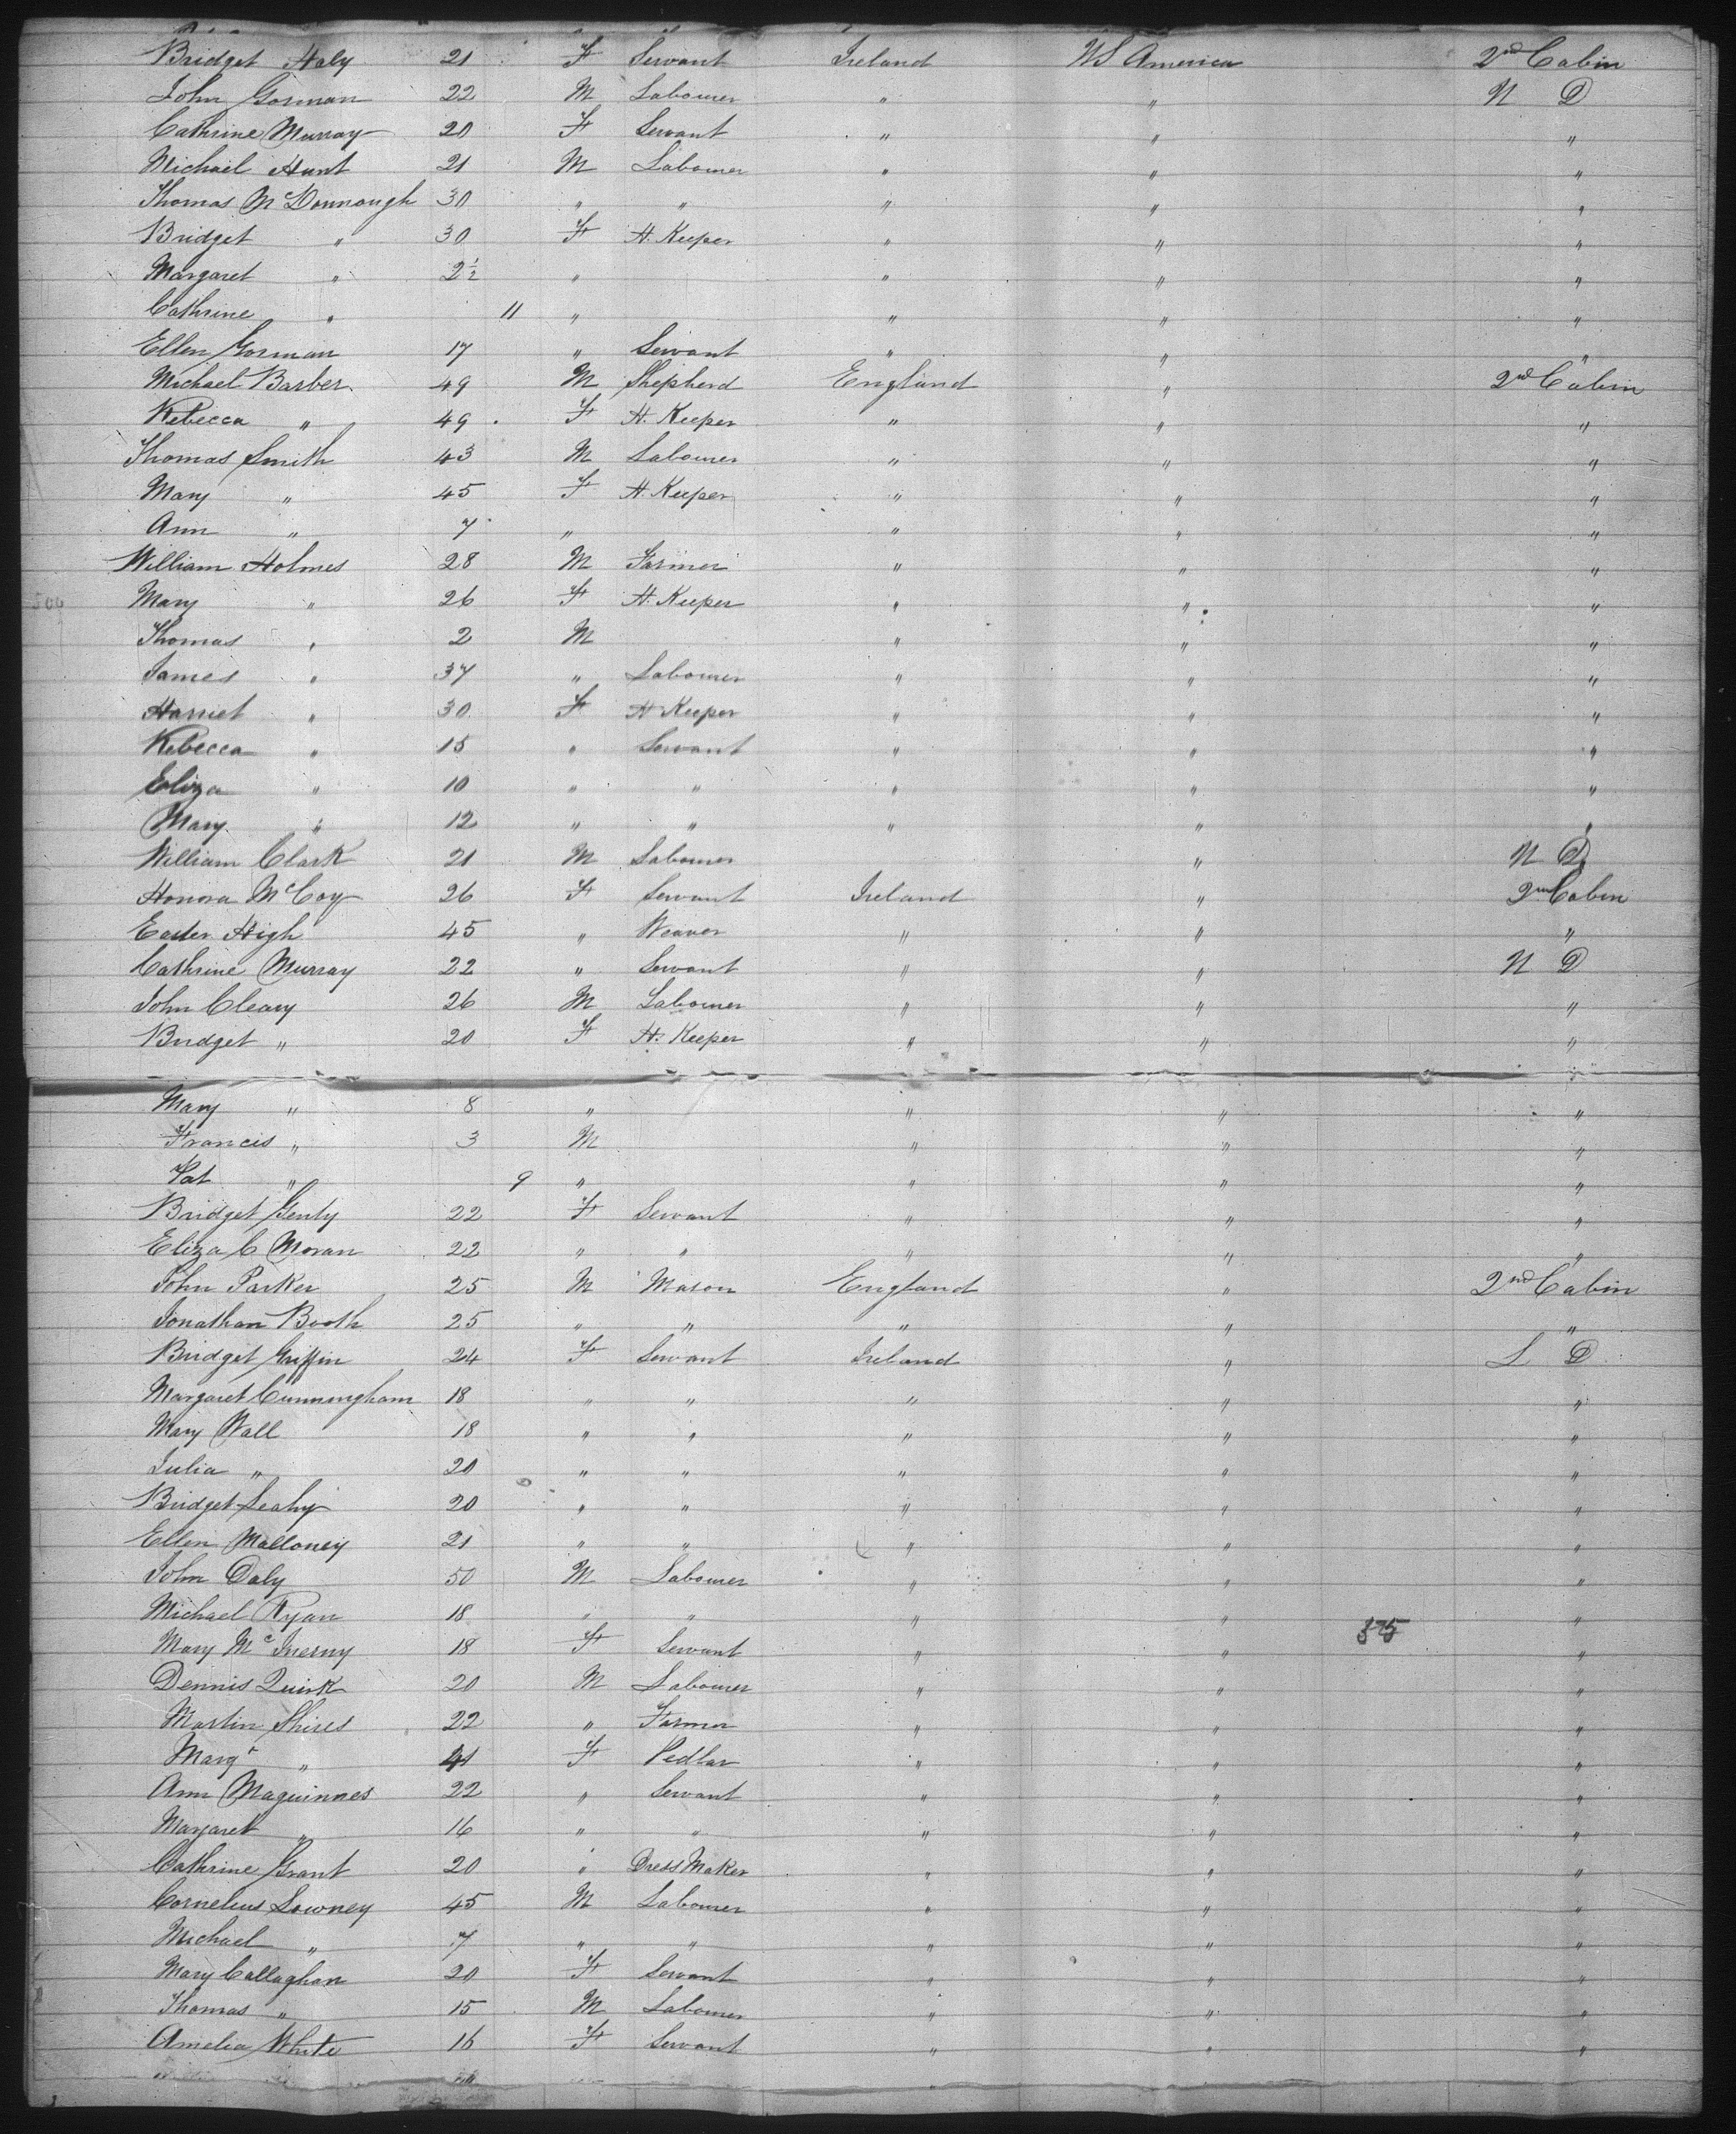 Bridget Haly 21 F Servant Ireland US America 2nd Cabin
John Gorman 22 M Labourer " " N D
Cathrine Murray 20 F Servant " " "
Michael Hunt 21 M Labourer " " "
Thomas McDonnough 30 " " " " "
Bridget " 30 F H. Keeper " " "
Margaret " 2½ " " " "
Cathrine " 11 " " " "
Ellen Gorman 17 " Servant " " "
Michael Barber 49 M Shepherd England " 2nd Cabin
Rebecca " 49 F H. Keeper " " "
Thomas Smith 43 M Labourer " " "
Mary " 45 F H. Keeper " " "
Ann " 7 " " " "
William Holmes 28 M Farmer " " "
Mary " 26 F H. Keeper " " "
Thomas " 2 M " " "
James " 37 " Labourer " " "
Harriet " 30 F H Keeper " " "
Rebecca " 15 " Servant " " "
Eliza " 10 " " " " "
Mary " 12 " " " " "
William Clark 21 M Labourer " N D
Honora McCoy 26 F Servant Ireland " 2nd Cabin
Easter High 45 " Weaver " " "
Cathrine Murray 22 " Servant " " N D
John Cleary 26 M Labourer " " "
Bridget " 20 F H. Keeper " " "
Mary " 8 " " " "
Francis " 3 M " " "
Pat " 9 " " " "
Bridget Genty 22 F Servant " " "
Eliza C Moran 22 " " " " "
John Parker 25 M Mason England " 2nd Cabin
Jonathan Booth 25 " " " " "
Bridget Griffin 24 F Servant Ireland " L D
Margaret Cunningham 18 " " " " "
Mary Wall 18 " " " " "
Julia " 20 " " " " "
Bridget Leahy 20 " " " " "
Ellen Malloney 21 " " " " "
John Daly 50 M Labourer " " "
Michael Ryan 18 " " " " 375 "
Mary McInerny 18 F Servant " " "
Dennis Quirk 20 M Labourer " " "
Martin Shires 22 " Farmer " " "
Margt " 41 F Pedlar " " "
Ann Maguinnes 22 " Servant " " "
Margaret " 16 " " " " "
Cathrine Grant 20 " Dress Maker " " "
Cornelius Lowney 45 M Labourer " " "
Michael " 7 " " " " "
Mary Callaghan 20 F Servant " " "
Thomas " 15 M Labourer " " "
Amelia White 16 F Servant " " "